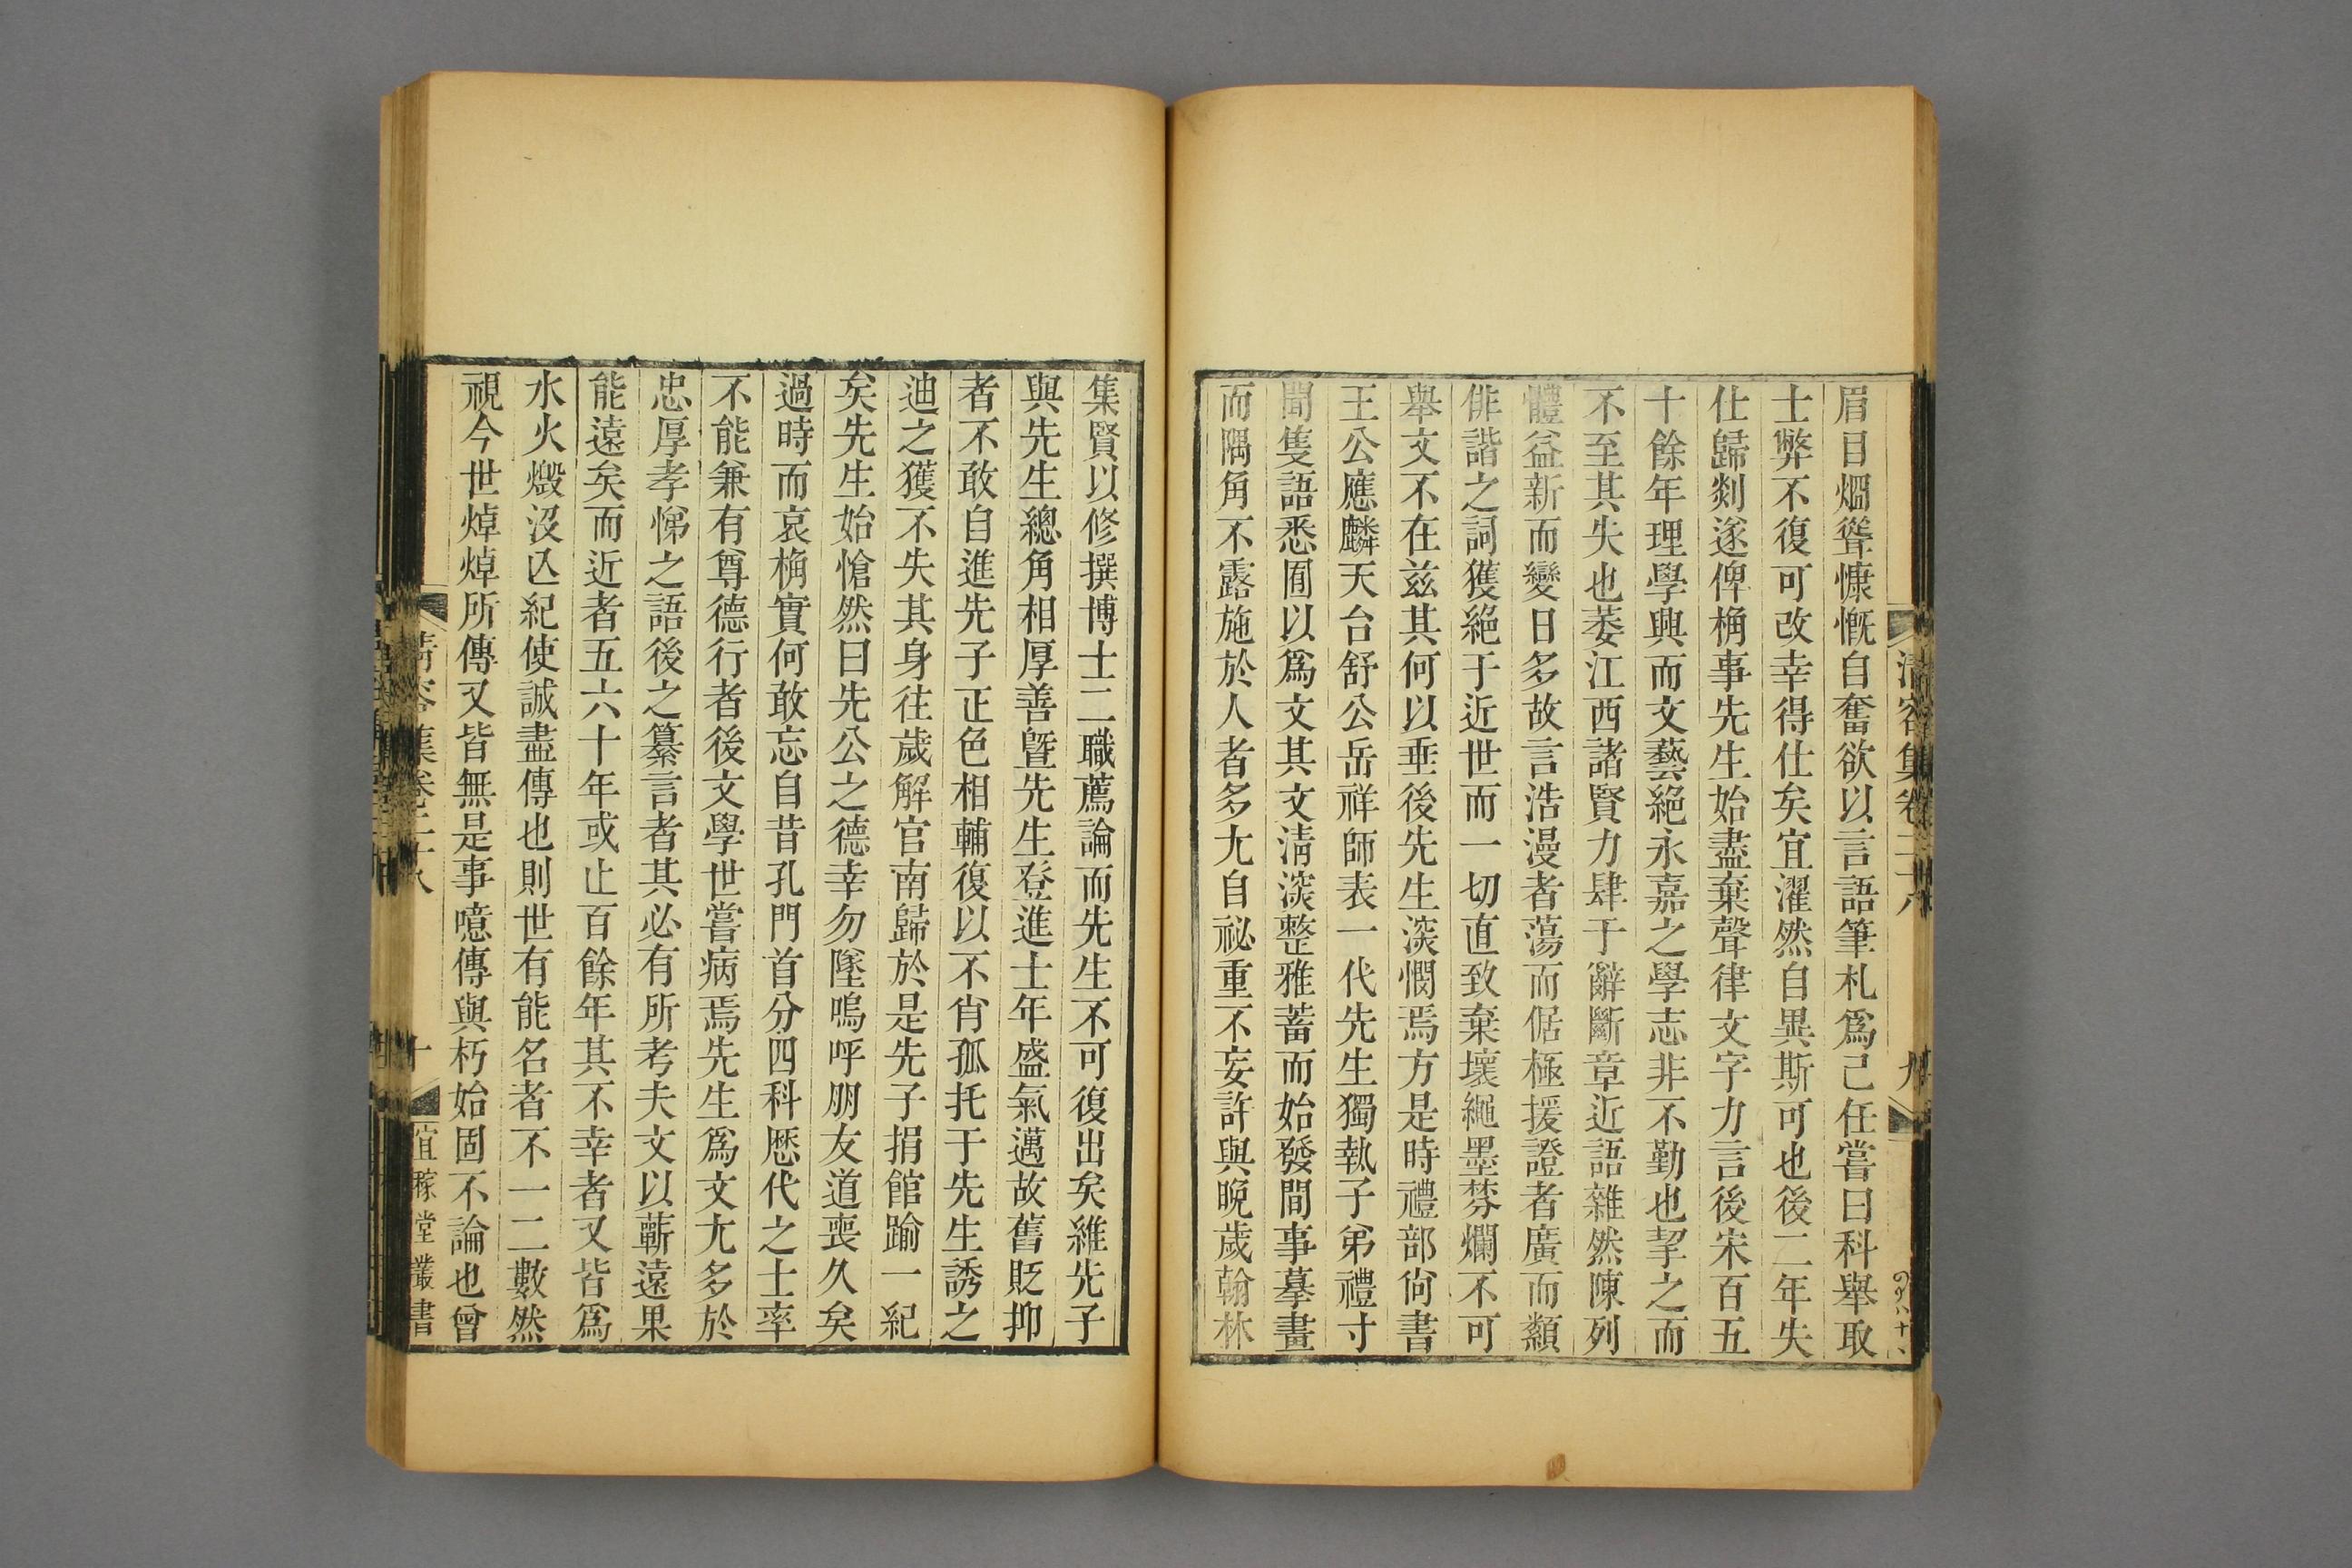 眉目烱聳慷慨自奮欲以言語筆札爲己任嘗曰科舉取
士弊不復可改幸得仕矣宜濯然自異斯可也後二年失
仕歸剡遂俾桷事先生始盡棄聲律文字力言後宋百五
十餘年理學興而文藝絕永嘉之學志非不勤也挈之而
不至其失也萎江西諸賢力肆于辭斷章近語雜然陳列
體益新而變日多故言浩漫者蕩而倨極援證者廣而纇
俳諧之詞獲絕于近世而一切直致棄壞繩墨棼爛不可
舉文不在兹其何以垂後先生深憫焉方是時禮部尙書
王公應麟天台舒公岳祥師表一代先生獨執子弟禮寸
聞隻語悉囿以爲文其文淸深整雅蓄而始發間事摹畫
而隅角不露施於人者多尤自祕重不妄許與晚歲翰林
清容集卷二十八
九
集賢以修撰博士二職薦論而先生不可復出矣維先子
與先生總角相厚善曁先生登進士年盛氣邁故舊貶抑
者不敢自進先子正色相輔復以不肖孤托于先生誘之
迪之獲不失其身往歲解官南歸於是先子捐館踰一紀
矣先生始愴然曰先公之德幸勿墜嗚呼朋友道喪久矣
過時而哀桷實何敢忘自昔孔門首分四科歷代之士率
不能兼有尊德行者後文學世嘗病焉先生爲文尤多於
忠厚孝悌之語後之纂言者其必有所考夫文以蘄遠果
能遠矣而近者五六十年或止百餘年其不幸者又皆爲
水火燬沒亾紀使誠盡傳也則世有能名者不一二數然
視今世焯焯所傳又皆無是事噫傳與朽始固不論也曾
清容集卷二十八
十
宜稼堂叢書